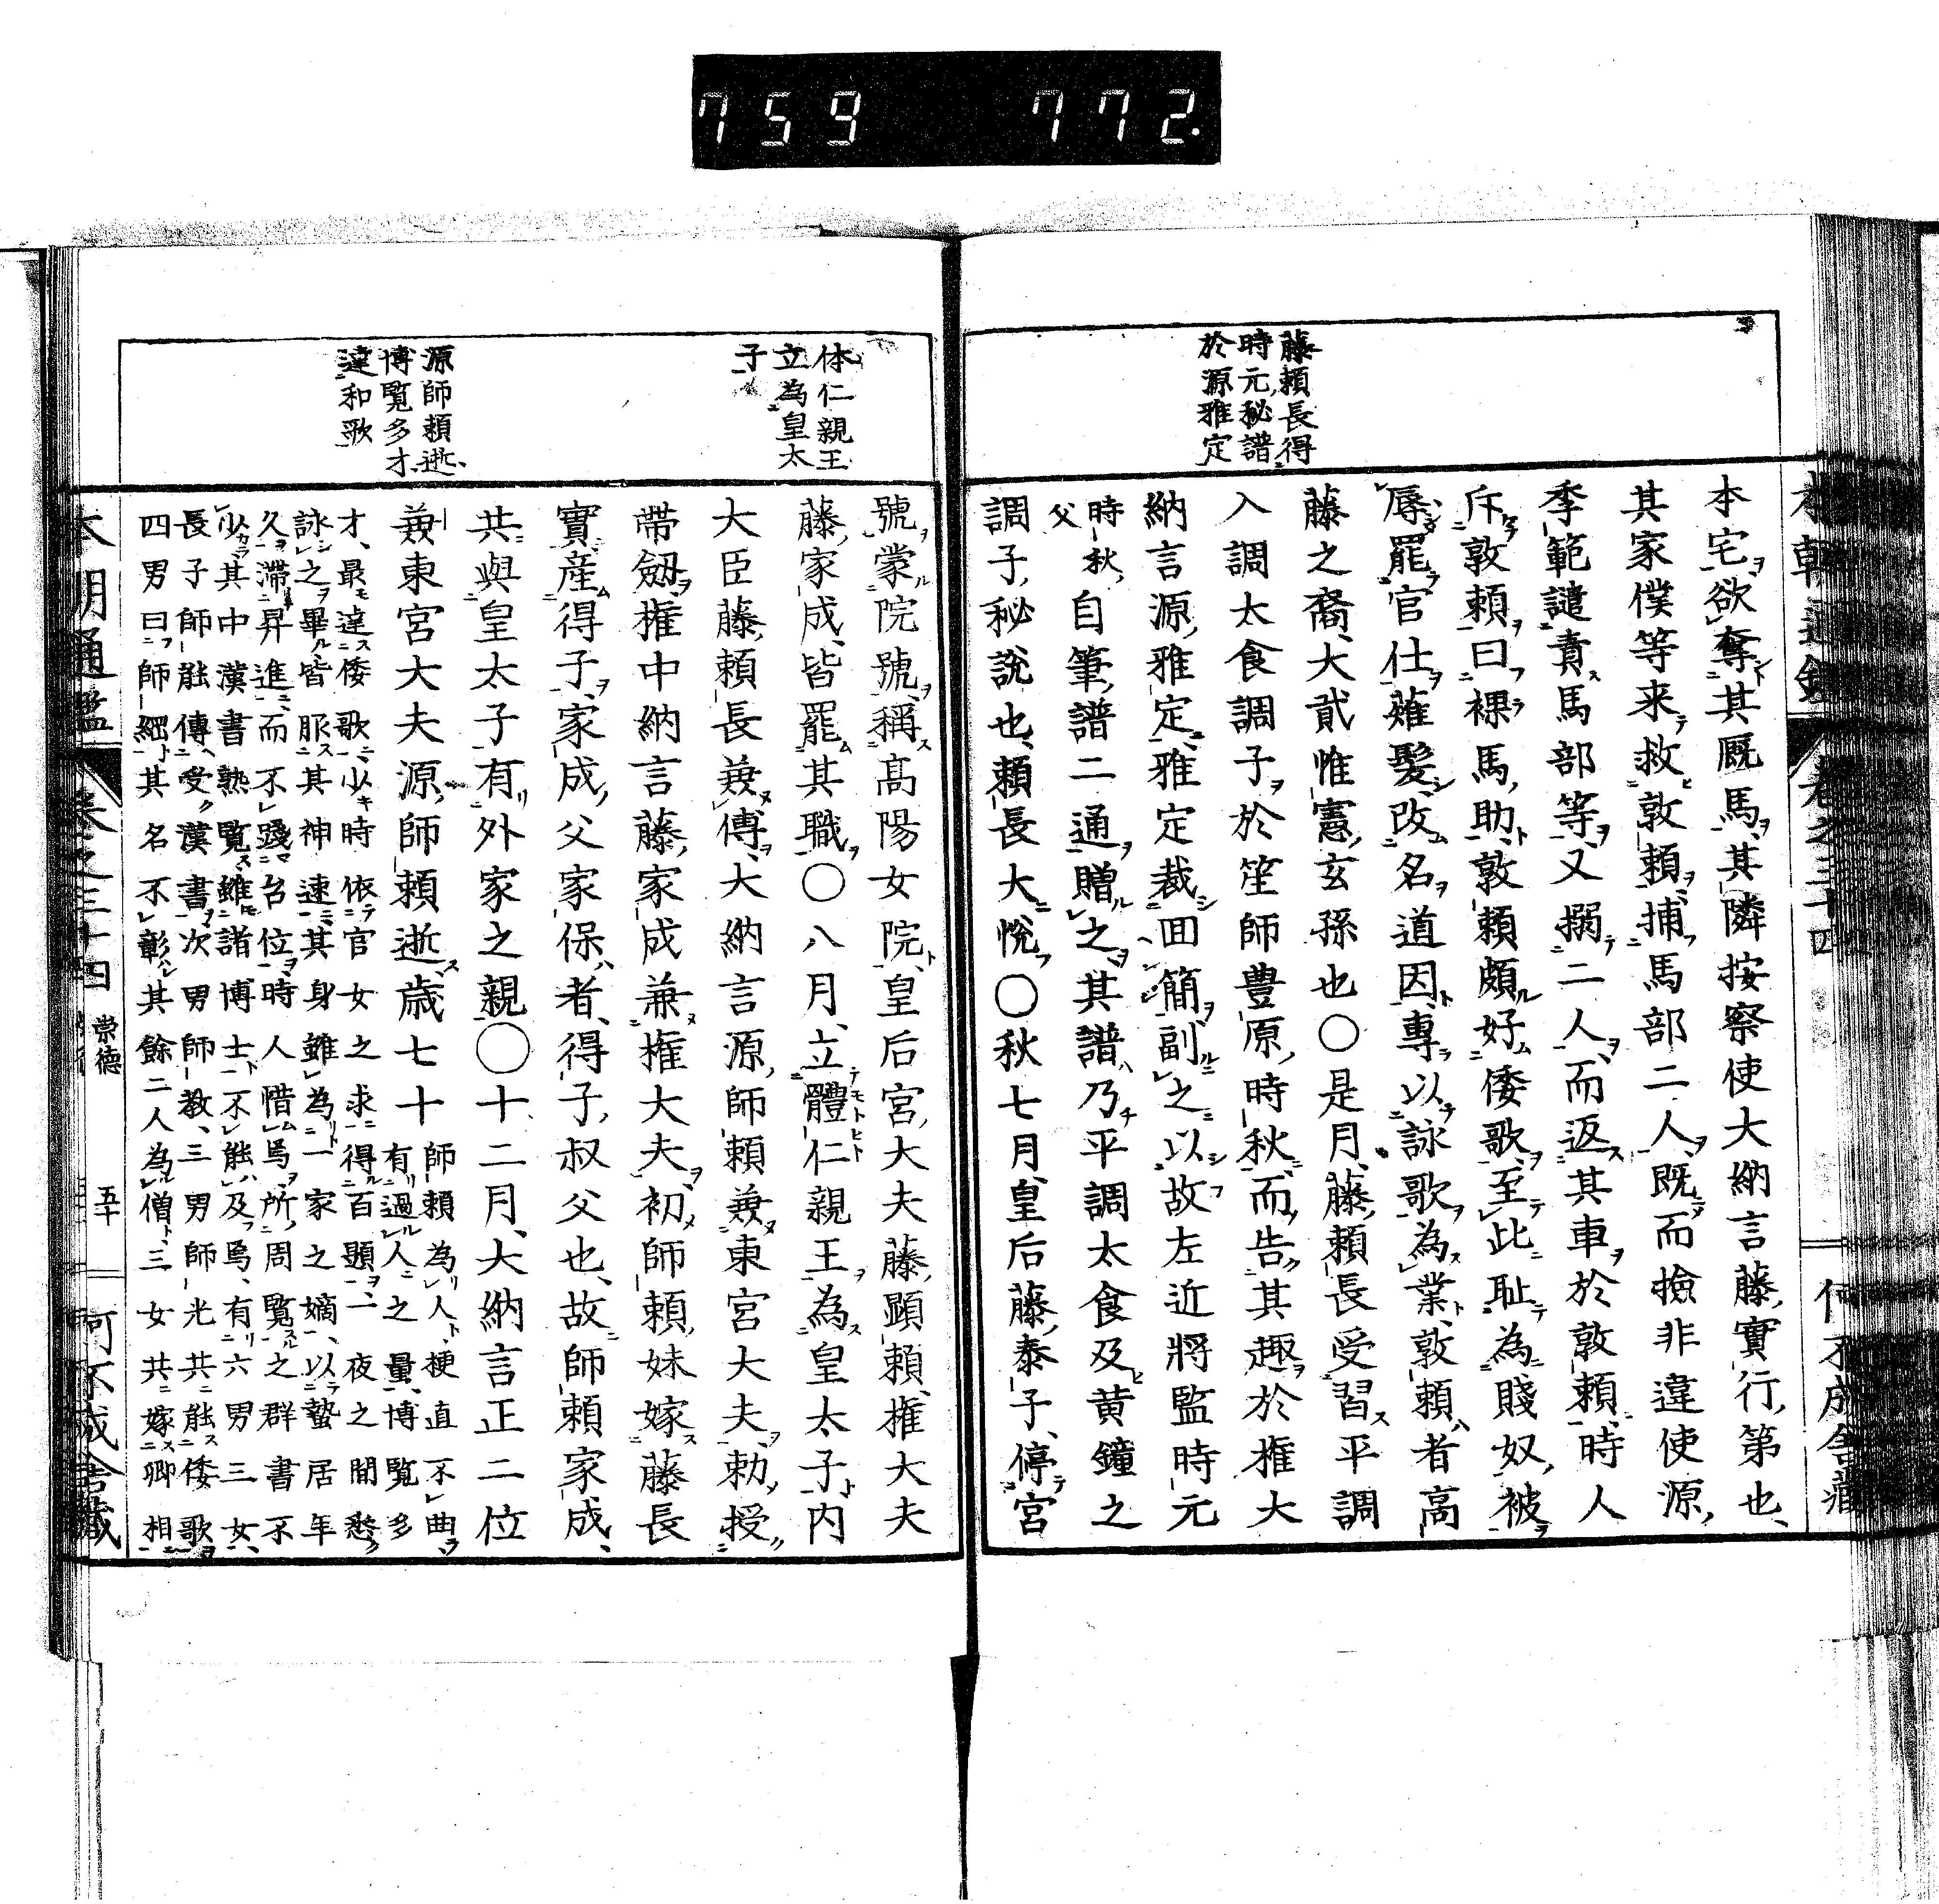 759 772.
藤頼長得
時元秘譜
於源雅定
本宅欲奪其厩馬其隣按察使大納言藤實行第也
其家僕等来救敦頼捕馬部二人既而撿非違使源
季範譴責馬部等又搦二人而返其車於敦頼時人
斥敦頼曰裸馬助敦頼頗好倭歌至此耻為賤奴被
辱罷官仕薙髮改名道因專以詠歌為業敦頼者高
藤之裔大貳惟憲玄孫也〇是月藤頼長受習平調
入調太食調子於笙師豊原時秋而告其趣於権大
納言源雅定雅定裁回簡副之以故左近將監時元
時秋父自筆譜二通贈之其譜乃平調太食及黄鐘之
調子秘說也頼長大悅〇秋七月皇后藤泰子停宮
体仁親王
立為皇太
子
源師頼逝
博覧多才
達和歌
號蒙院號稱高陽女院皇后宮大夫藤顕頼権大夫
藤家成皆罷其職〇八月立體仁親王為皇太子内
大臣藤頼長兼傅大納言源師頼兼東宮大夫勅授
帶劔権中納言藤家成兼権大夫初師頼妹嫁藤長
實産得子家成父家保者得子叔父也故師頼家成
共與皇太子有外家之親〇十二月大納言正二位
兼東宮大夫源師頼逝歳七十師頼為人梗直不曲
有過人之量博覧多
才最達倭歌少時依官女之求得百題一夜之間愁
詠之畢皆服其神速其身雖為一家之嫡以蟄居年
久滞昇進而不踐台位時人惜焉所周覧之群書不
少其中漢書熟覧雖諸博士不能及焉有六男三女
長子師能傳受漢書次男師教三男師光共能倭歌
四男曰師綱其名不彰其餘二人為僧三女共嫁卿相
本朝通鑑 巻之三十四 崇德 五十 何不成舎蔵